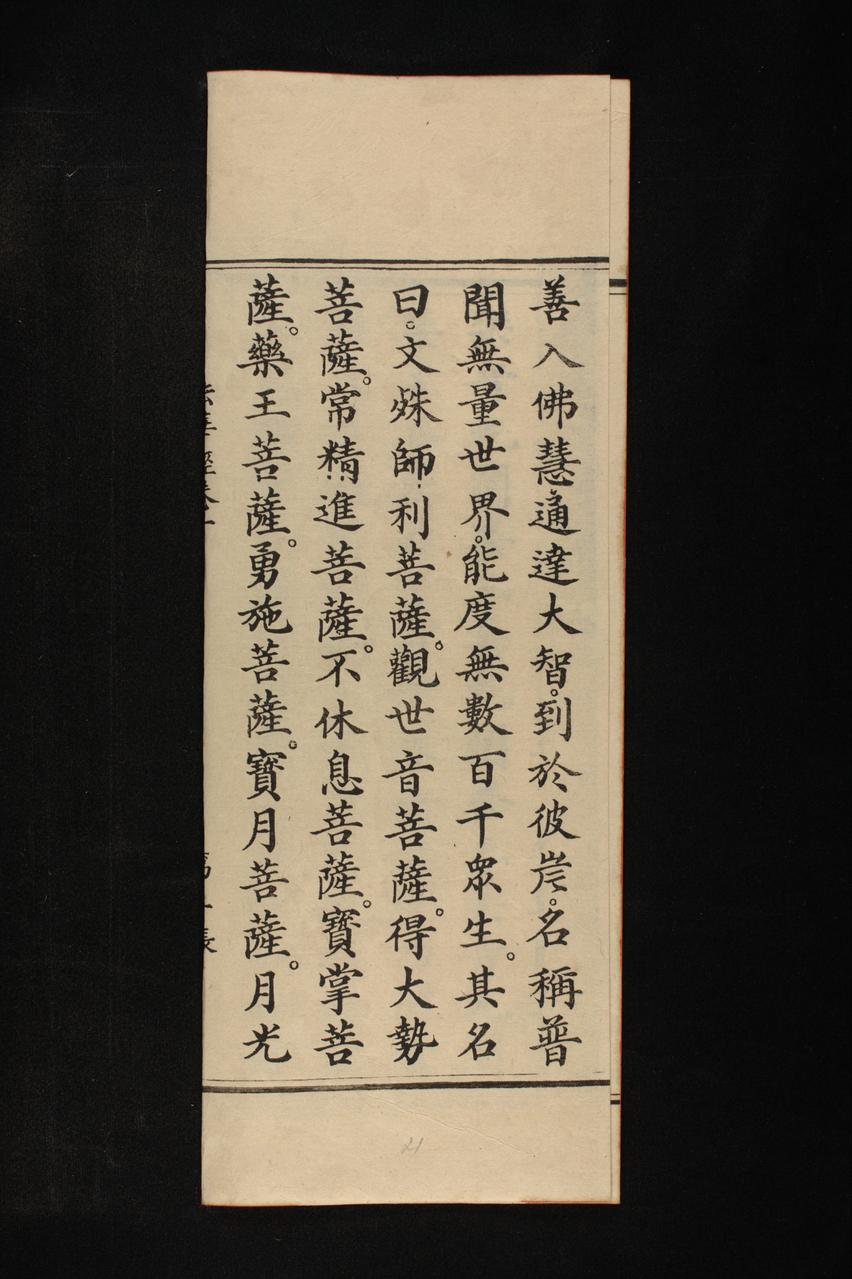 善入佛慧通達大智。到於彼岸。名稱普
聞無量世界。能度無數百千衆生。其名
曰。文殊師利菩薩。觀世音菩薩。得大勢
菩薩。常精進菩薩。不休息菩薩。寶掌菩
薩。藥王菩薩。勇施菩薩。寶月菩薩。月光
21